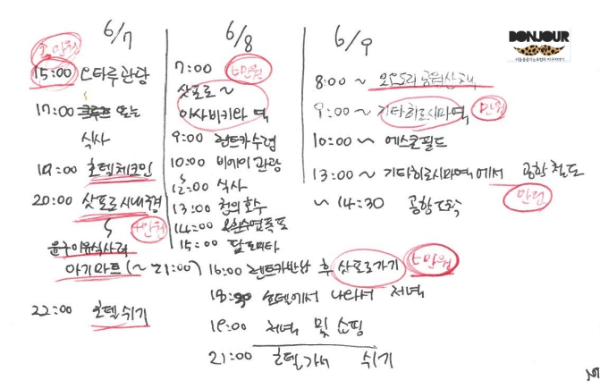 6/7
15:00 오타루관광
17:00 또는
식사
19:00 호텔체크인
20:00 삿포로시내구경
(~ 21:00)
22:00 호텔쉬기
6/8
7:00
삿포로 ~
아사비키와 역
9:00 렌트카수령
10:00 비에이 관광
12:00 식사
13:00 청의호수
14:00 흰수염폭포
15:00
16:00 렌트카반납 후 삿포로가기 만원
호텔에서 나와서 저녁
19:00 저녁 및 쇼핑
21:00 호텔가서 쉬기
6/9
8:00 ~
9:00 ~ 기타히로시마역 만원
10:00 ~ 에스콘필드
13:00 ~ 기타히로시마역에서 공항 철도
~ 14:30 공항도착 만원
BONJOUR